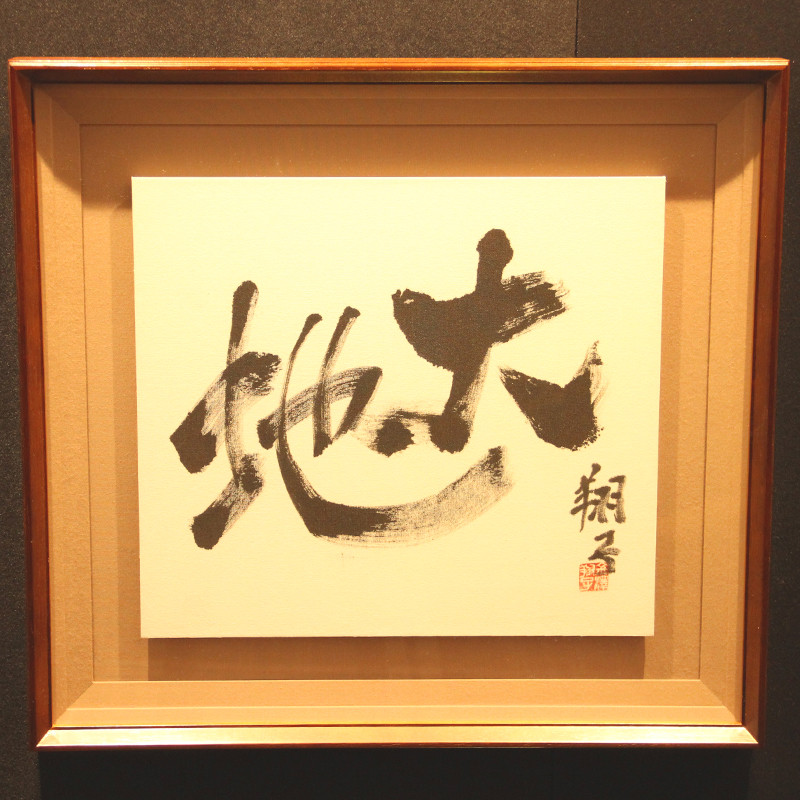 大地
翔子